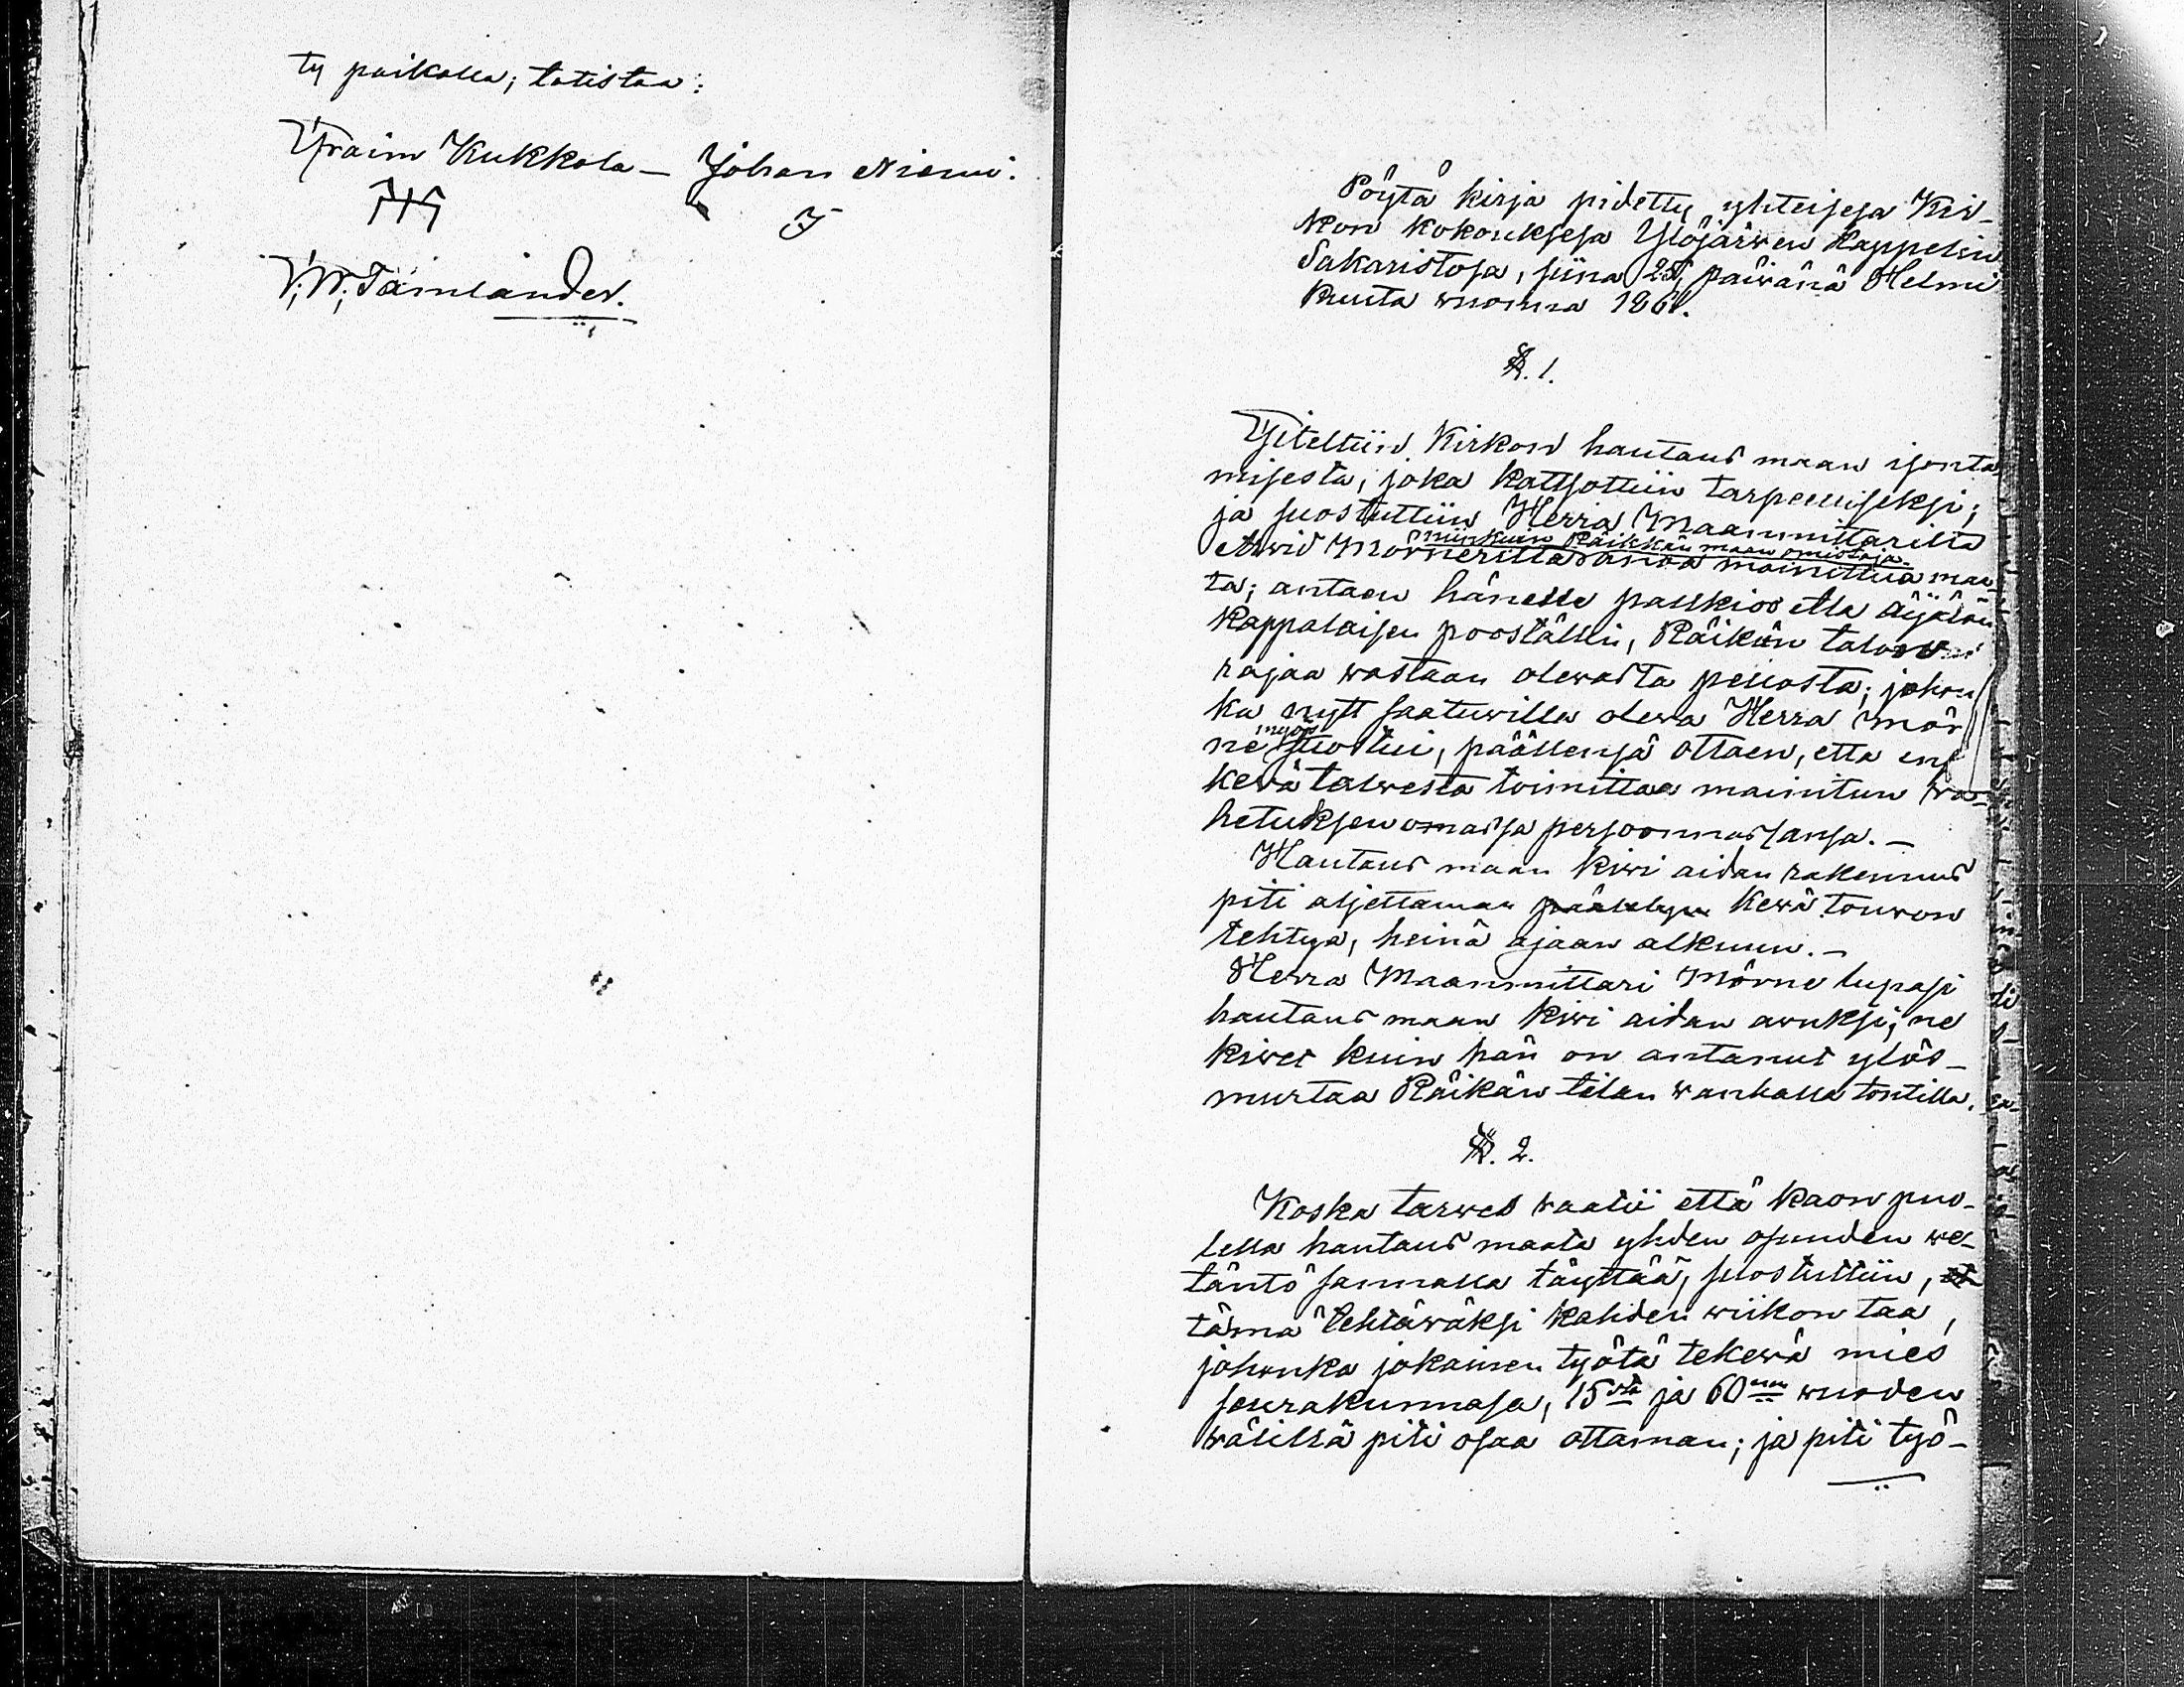 ty paikalla; totistaa:
Efraim Kukkola – Johan Niemi.
J
V: W: Tämlander.
Pöytä kirja pidetty yhteisesä Kir-
kon kokouksesa Ylöjärwen kappelin
Sakaristosa, siinä 25 päiwänä Helmi
kuuta wuonna 1861.
§. 1.
Esiteltiin Kirkon hautaus maan isonta-
misesta, joka kattsottiin tarpeelliseksi;
ja suostuttiin Herra Maanmittarilta
niinkuin Räikkän maan omistaja
Arwid Mörneriltä anoa mainittua maa-
ta; antaen hänelle palkkioo alla äijälän
Kappalaisen pooställin, Räikän talon
rajaa wastaan olewasta pellosta; johon
ka nytt saatuwilla olewa Herra Mör
myös
ne suostui, päällensä ottaen, etta ens
kewä talwesta toimittaa mainitun wa-
hetuksen omassa persoonnassansa. –
Hautaus maan kiwi aidan rakennus
piti aljettaman kewä touwon
tehtyä, heinä ajaan alkuun. –
Herra Maanmittari Mörne lupasi
hautaus maan kiwi aidan awuksi, ne
kiwet kuin hän on antanut ylös-
murtaa Räikän tilan wanhalla tontilla.
§. 2.
Koska tarwes waatii että kaon puo-
lella hautaus maata yhden osuuden we-
täntö sannalla täyttää, suostuttiin,
tämä tehtäwäksi kahden wiikon taa,
johonka jokainen työtä tekewä mies
seurakunnasa, 15sta ja 60nen wuoden
wälillä piti osaa ottaman; ja piti työ-